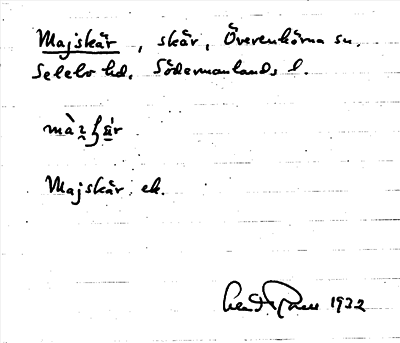 Majskär, skär, Överenhörna sn.
Selebo hd. Södermanlands l.
Majskär, ek.
1932